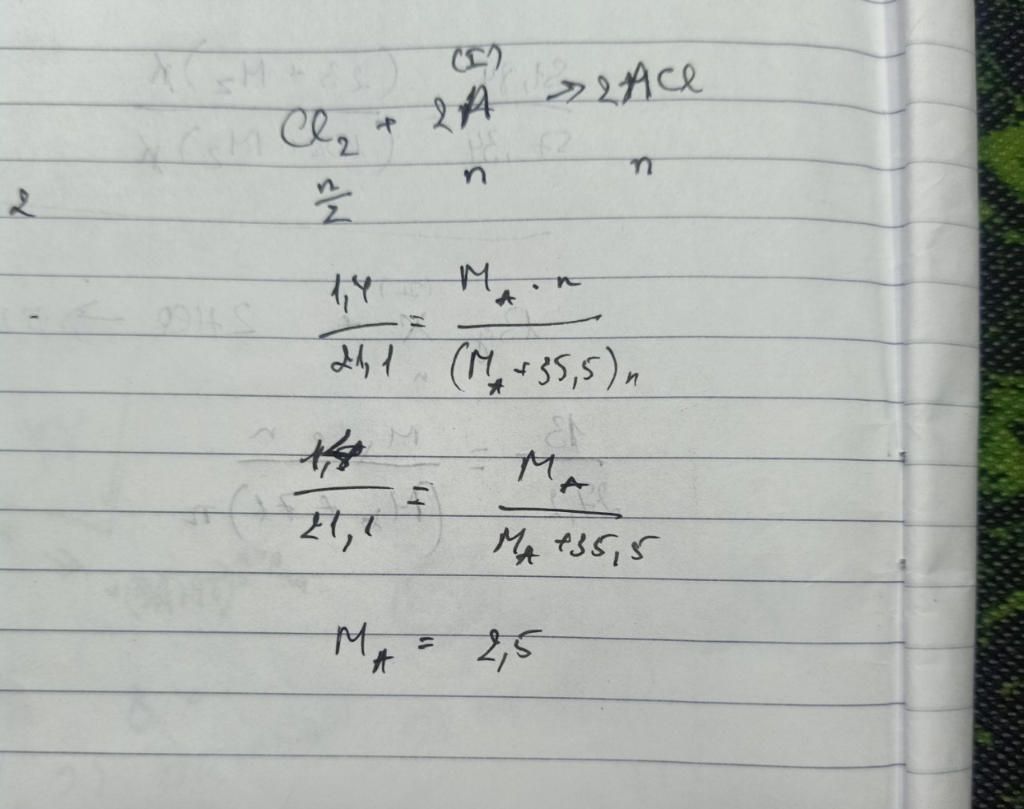 (I)
Cl2 + 2A → 2ACl
2 n/2 n n
1,4/21,1 = MA . n/(MA + 35,5)n
/21,1 = MA/MA + 35,5
MA = 2,5